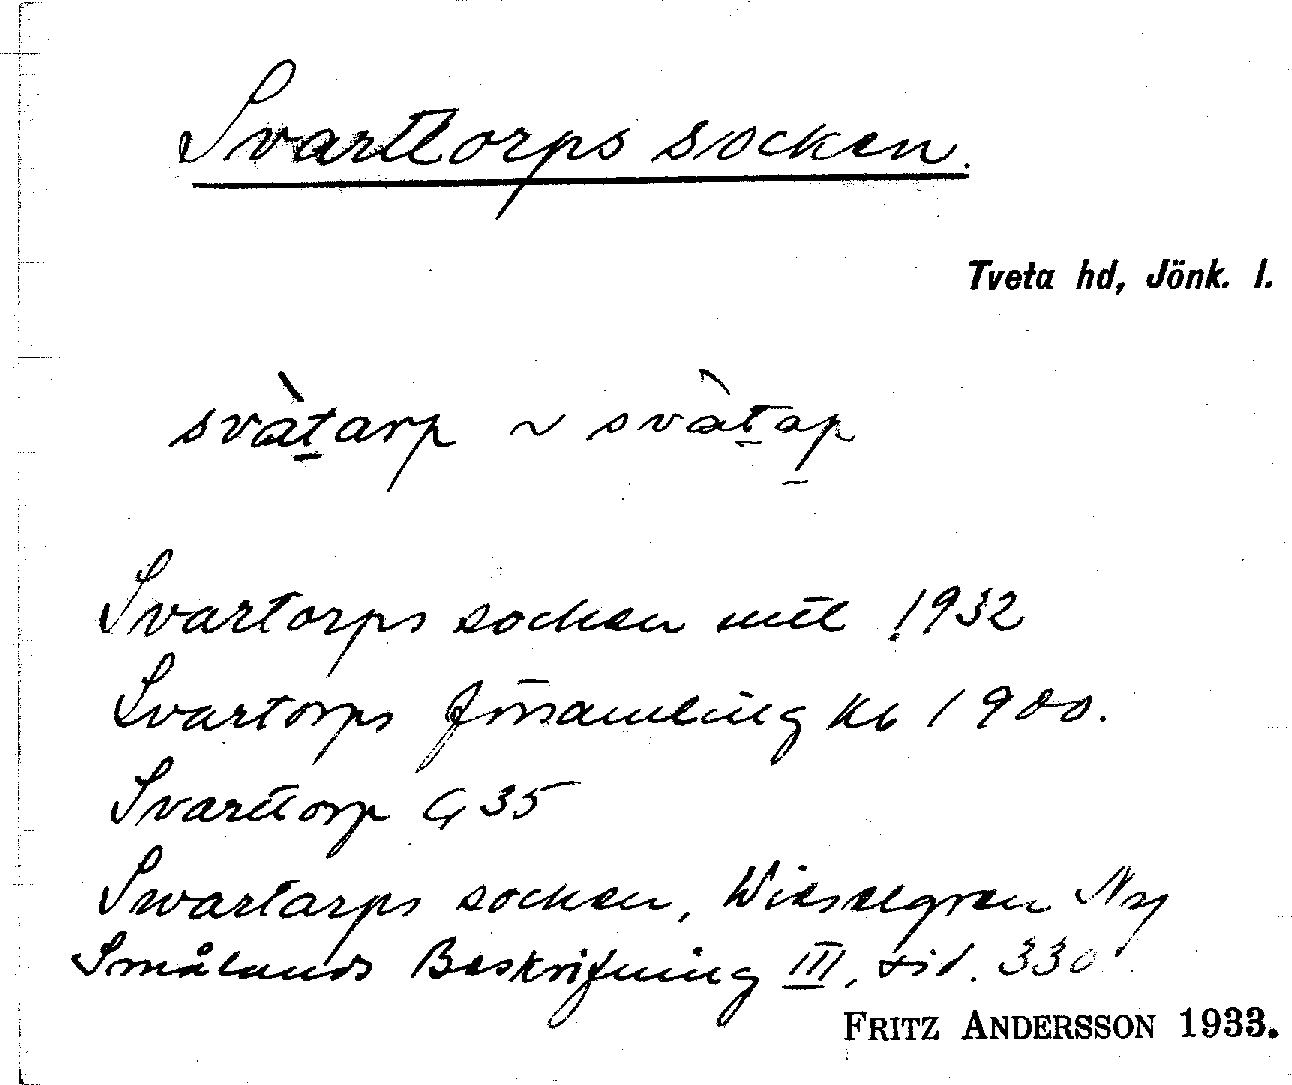 Svarttorps socken.
Tveta hd, Jönk. l.
svàt̠arp ~ svàt̠ap̠
Svartorps socken mtl 1932
Svartorps församling kb 1900.
Svarttorp G 35
Swartarps socken, Wieselgren Ny
Smålands Beskrifning III, sid. 330
FRITZ ANDERSSON 1933.